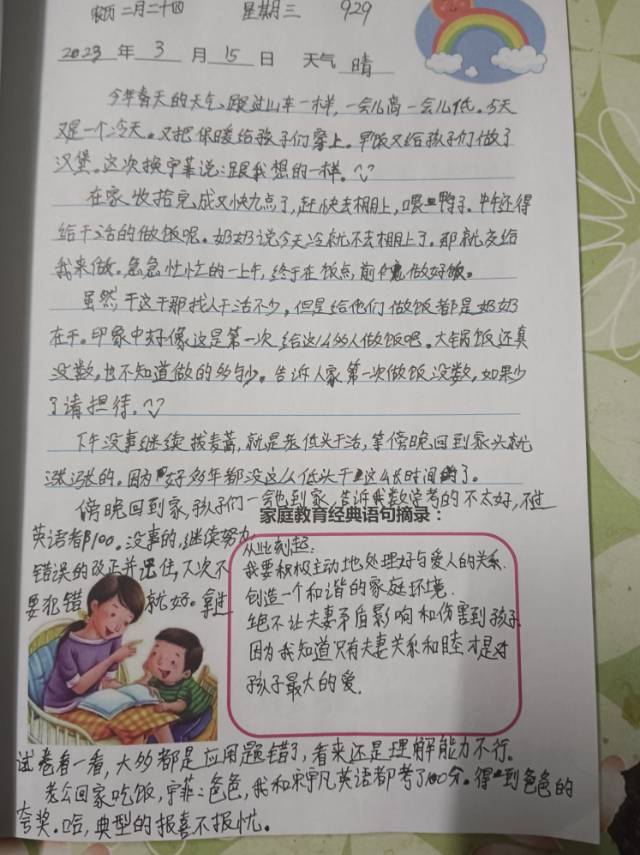 农历 二月二十四 星期三 929
2023 年 3 月 15 日 天气 晴
今年春天的天气跟过山车一样,一会儿高一会儿低。今天
又是一个冷天。又把保暖给孩子们穿上。早饭又给孩子们做了
汉堡。这次换宇菲说:跟我想的一样。
在家收拾完成又快九点了,赶快去棚上,喂鸭子。中午还得
给干活的做饭呢。奶奶说今天冷就不去棚上了。那就交给
我来做。急急忙忙的一上午,终于在饭点前做好饭。
虽然干这干那找人干活不少,但是给他们做饭都是奶奶
在干。印象中好像这是第一次给这么多人做饭吧。大锅饭还真
没数,也不知道做的多与少。告诉人家第一次做饭没数,如果少
了请担待。
下午没事继续拔麦蒿,就是老低头干活,等傍晚回到家头就
涨涨的。因为好多年都没这么低头干这么长时间了。
傍晚回到家,孩子们一会也到家,告诉我数学考的不太好,不过
家庭教育经典语句摘录:
英语都100。没事的,继续努力,
错误的改正并记住,下次不
要犯错就好。拿过
从此刻起:
我要积极主动地处理好与爱人的关系.
创造一个和谐的家庭环境.
绝不让夫妻矛盾影响和伤害到孩子.
因为我知道只有夫妻关系和睦才是对
孩子最大的爱.
试卷看一看,大多都是应用题错了,看来还是理解能力不行.
老公回家吃饭,宇菲:爸爸,我和宋宇凡英语都考了100分。得到爸爸的
夸奖。哈,典型的报喜不报忧。